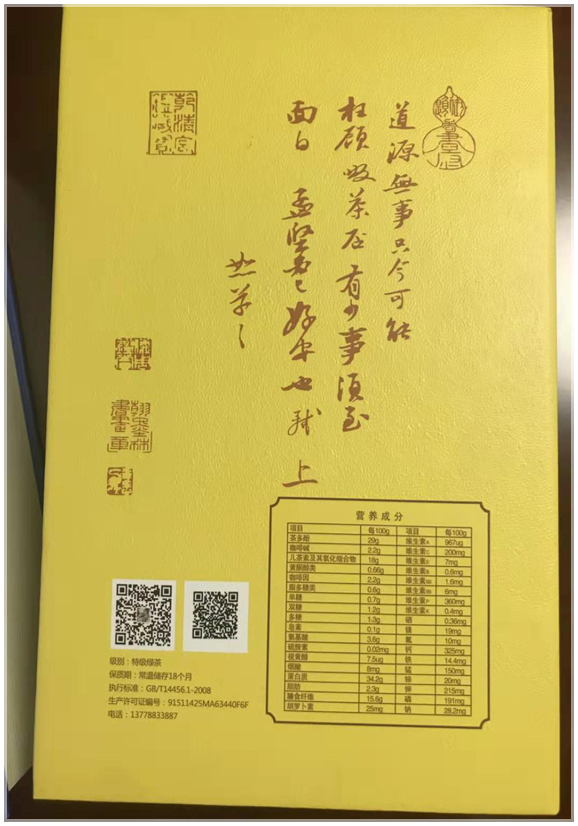 道源無事只今可能
枉顧啜茶否有少事須至
面白 孟堅必已好安也軾 上
恕草草
翰墨林
書畫章
营养成分
项目 每100g 项目 每100g
茶多酚 29g 维生素A 967ug
咖啡碱 2.2g 维生素C 200mg
儿茶素及其氧化缩合物 18g 维生素E 7mg
黄酮醇类 0.66g 维生素B 0.6mg
咖啡因 2.2g 维生素 1.6mg
多糖类 0.6g 维生素 6mg
单糖 0.7g 维生素P 360mg
双糖 1.2g 维生素K 0.4mg
多糖 1.3g 硒 0.36mg
皂素 0.1g 镁 19mg
氨基酸 3.6g 氟 10mg
硫胺素 0.02mg 钙 325mg
视黄醇 7.5ug 铁 14.4mg
烟酸 8mg 锰 150mg
蛋白质 34.2g 20mg
脂肪 2.3g 钾 215mg
膳食纤维 15.6g 磷 191mg
胡萝卜素 25mg 钠 28.2mg
级别：特级绿茶
保质期：常温储存18个月
执行标准：GB/T14456.1-2008
生产许可证编号：91511425MA63440F6F
电话：13778833887